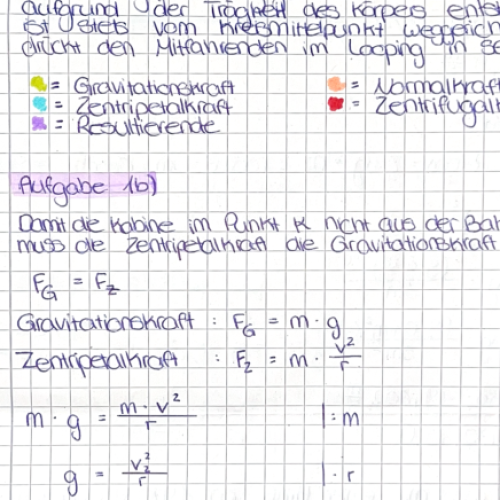 aufgrund der Trägheit des Körpers ents
ist stets vom Kreismittelpunkt weggerich
drückt den Mitfahrenden im Looping in se
= Gravitationskraft = Normalkraft
= Zentripetalkraft = Zentrifugalk
= Resultierende
Aufgabe 1b)
Damit die Kabine im Punkt K nicht aus der Bah
muss die Zentripetalkraft die Gravitationskraft
F_G = F_Z
Gravitationskraft : F_G = m · g
Zentripetalkraft : F_Z = m · v²/r
m · g = m · v²/r |: m
g = v²/r | · r